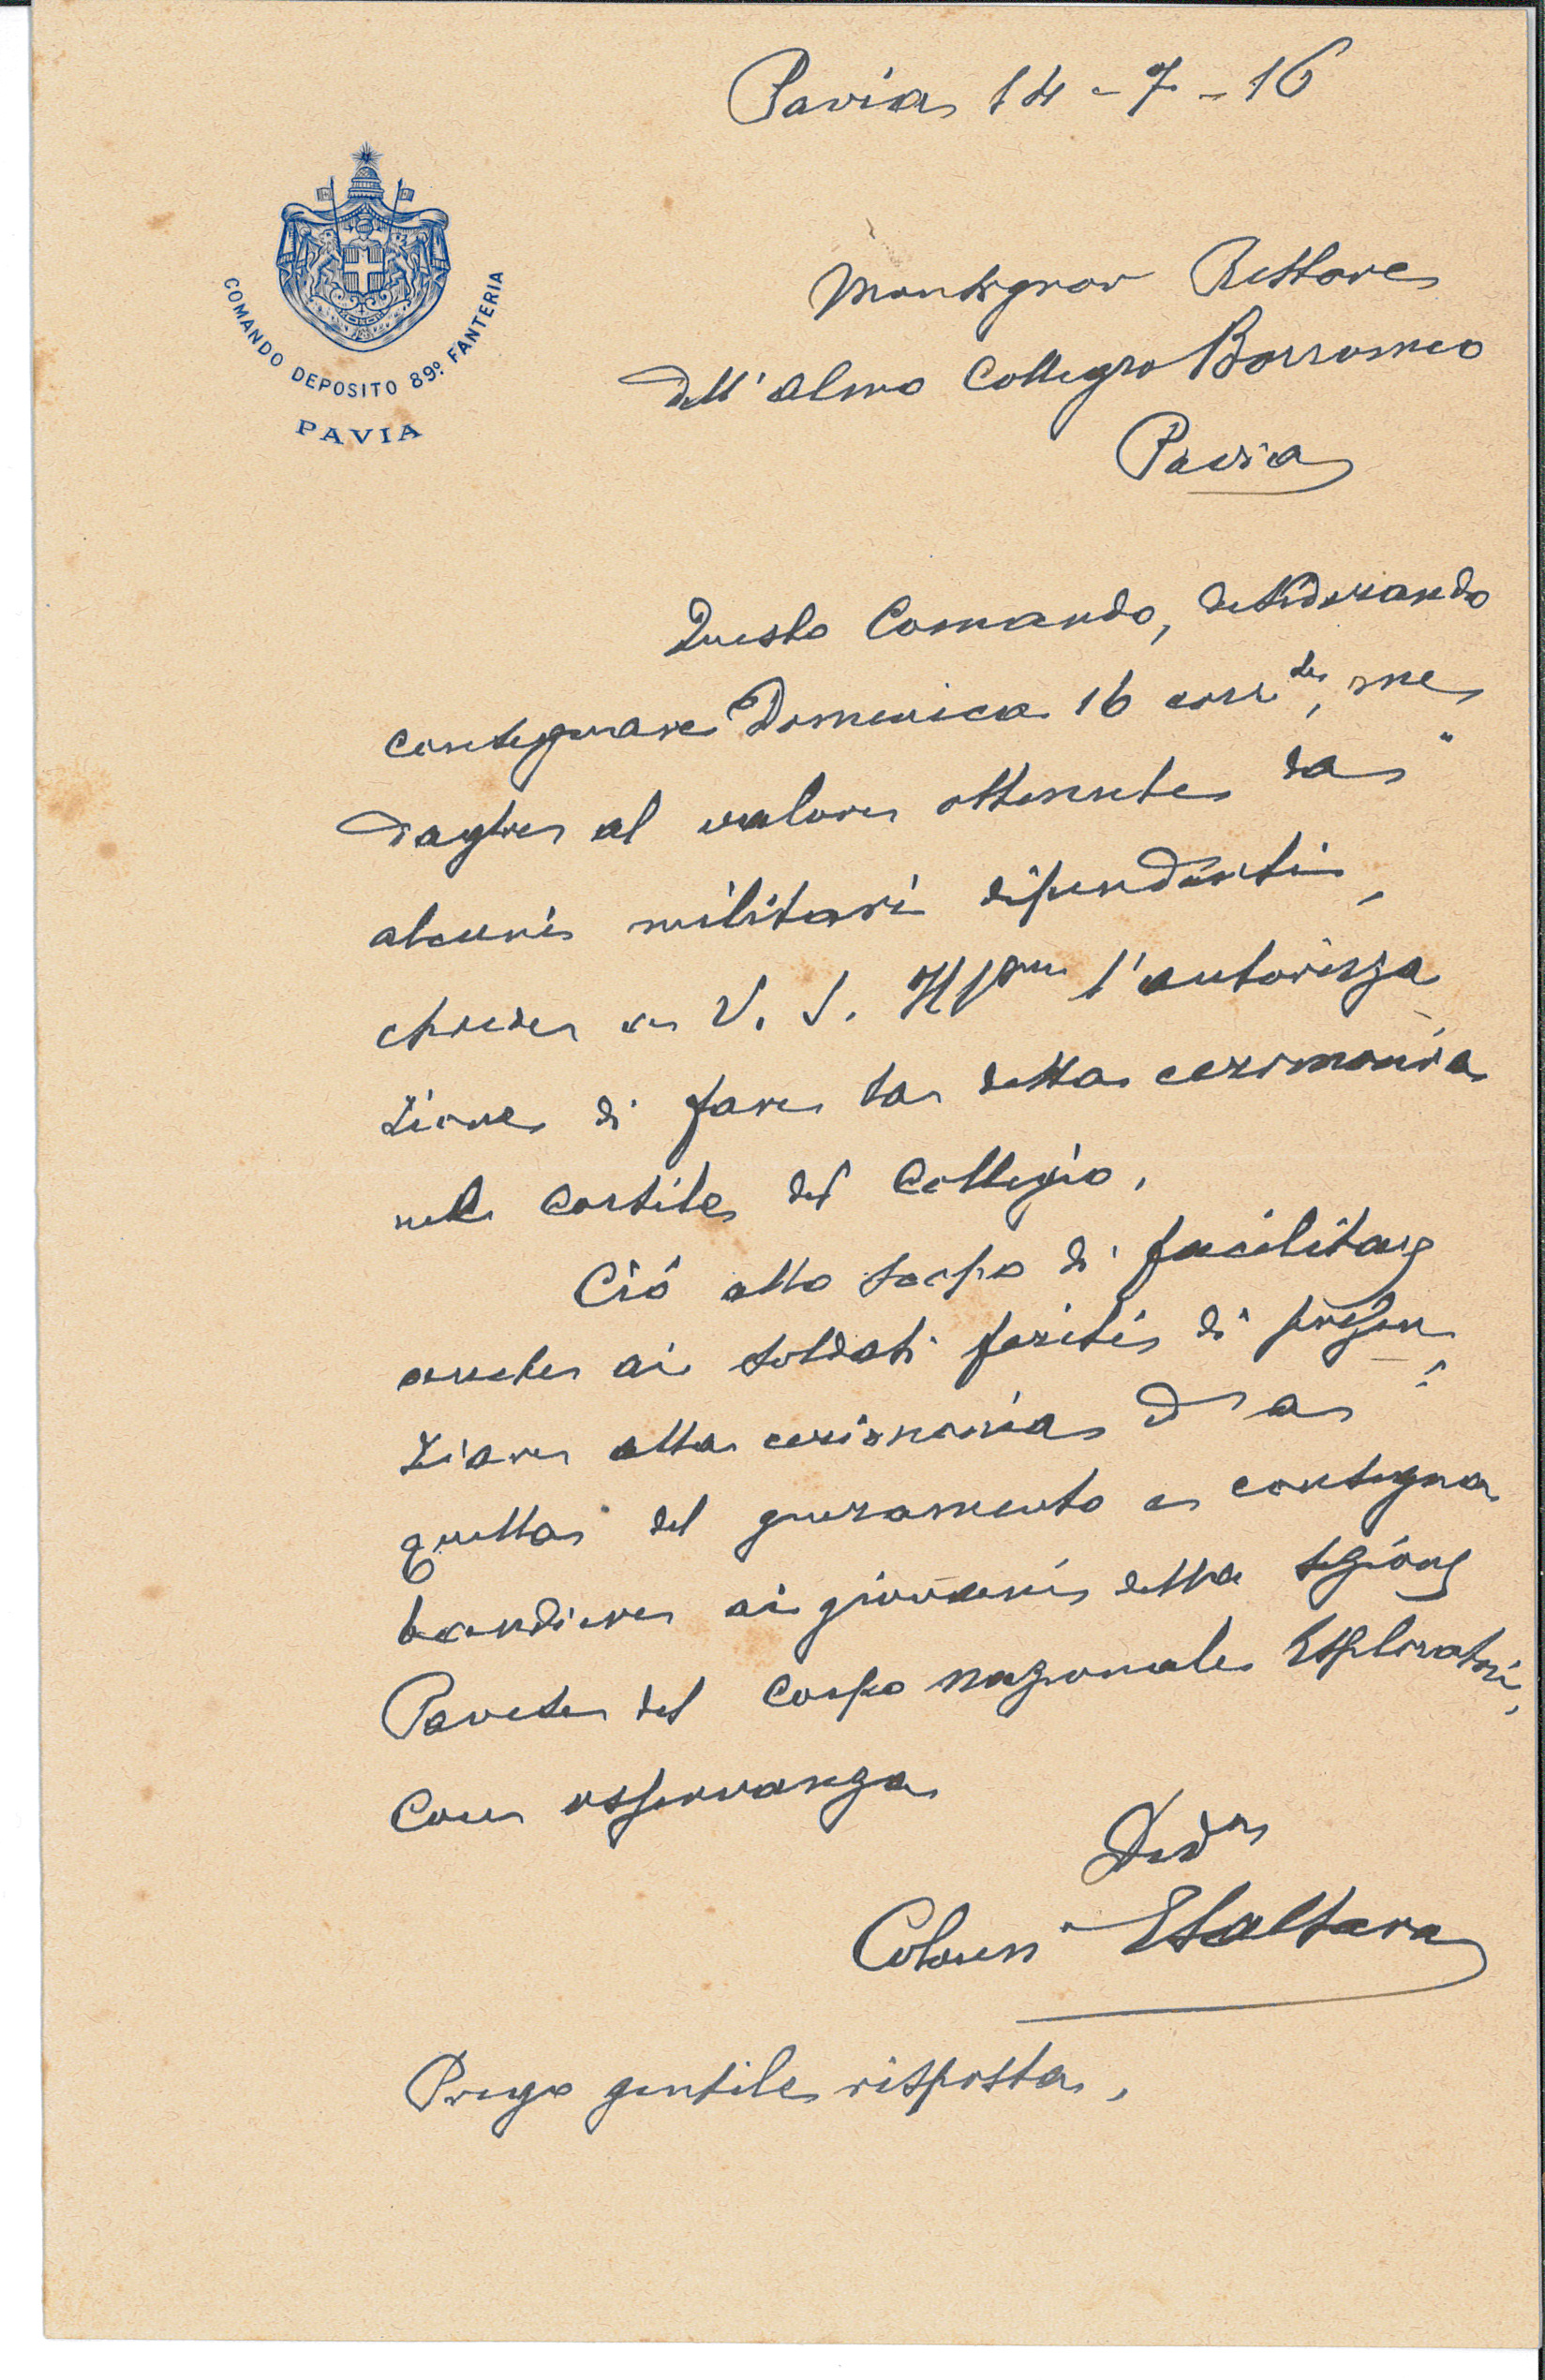 Pavia 14-7-16
COMANDO DEPOSITO 89º FANTERIA
PAVIA
Monsignor Rettore
dell'almo Collegio Borromeo
Pavia
Questo Comando, desiderando
consegnare Domenica 16 corr.te, me
daglie al valore ottenute da
alcuni militari dipendenti,
chiede a V. S. Ill.ma l'autorizza
zione di fare la detta cerimonia
nel cortile del Collegio.
Ciò allo scopo di facilitare
anche ai soldati feriti di presen
ziare alla cerimonia ed a
quella del giuramento e consegna
bandiere ai giovani della sezione
Pavese del Corpo Nazionale Esploratori,
Con osservanza
Colonn
Prego gentile risposta,